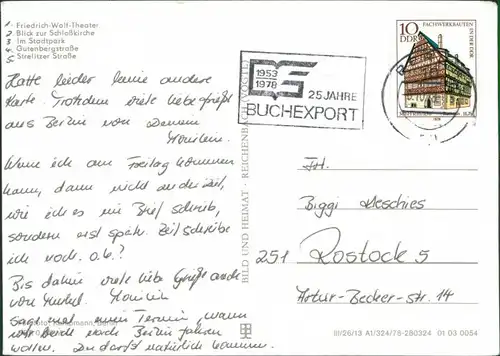 1 Friedrich-Wolf-Theater
2 Blick zur Schloßkirche
3 Im Stadtpark
4 Gutenbergstraße
5 Strelitzer Straße
Hatte leider keine andere
Karte. Trotzdem viele liebe Grüße
aus Berlin von Deinem
Wenn ich am Freitag kommen
kann, dann nicht an der Zeit,
wie ich es im Brief schrieb,
sondern erst spät. Zeit schreibe
ich noch. o.k.?
Bis dahin viele liebe Grüße auch
von
Sage mal einen Termin, wann
wir beide nach Berlin fahren
wollen. Du darfst natürlich kommen.
BILD UND HEIMAT · REICHENBACH (VOGTL)
1953
1978
25 JAHRE
BUCHEXPORT
10
DDR
FACHWERKBAUTEN
IN DER DDR
Frl.
Biggi Meschies
251 Rostock 5
Artur-Becker-str. 14
III/26/13 A1/324/78-280324 01 03 0054